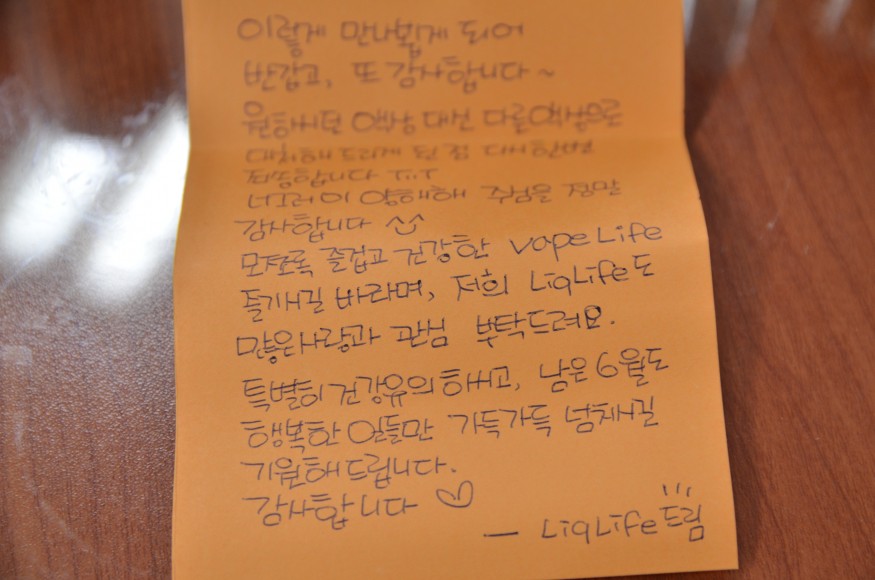 이렇게 만나뵙게 되어
반갑고, 또 감사합니다~
원하시던 액상 대신 다른액상으로
대체해드리게 된 점 다시한번
죄송합니다 TㅠT
너그러이 양해해 주심을 정말
감사합니다
모쪼록 즐겁고 건강한 Vape Life
즐기시길 바라며, 저희 LiqLife도
많은사랑과 관심 부탁드려요.
특별히 건강유의 하시고, 남은 6월도
행복한 일들만 가득가득 넘치시길
기원해드립니다.
감사합니다 ♡
— LiqLife드림